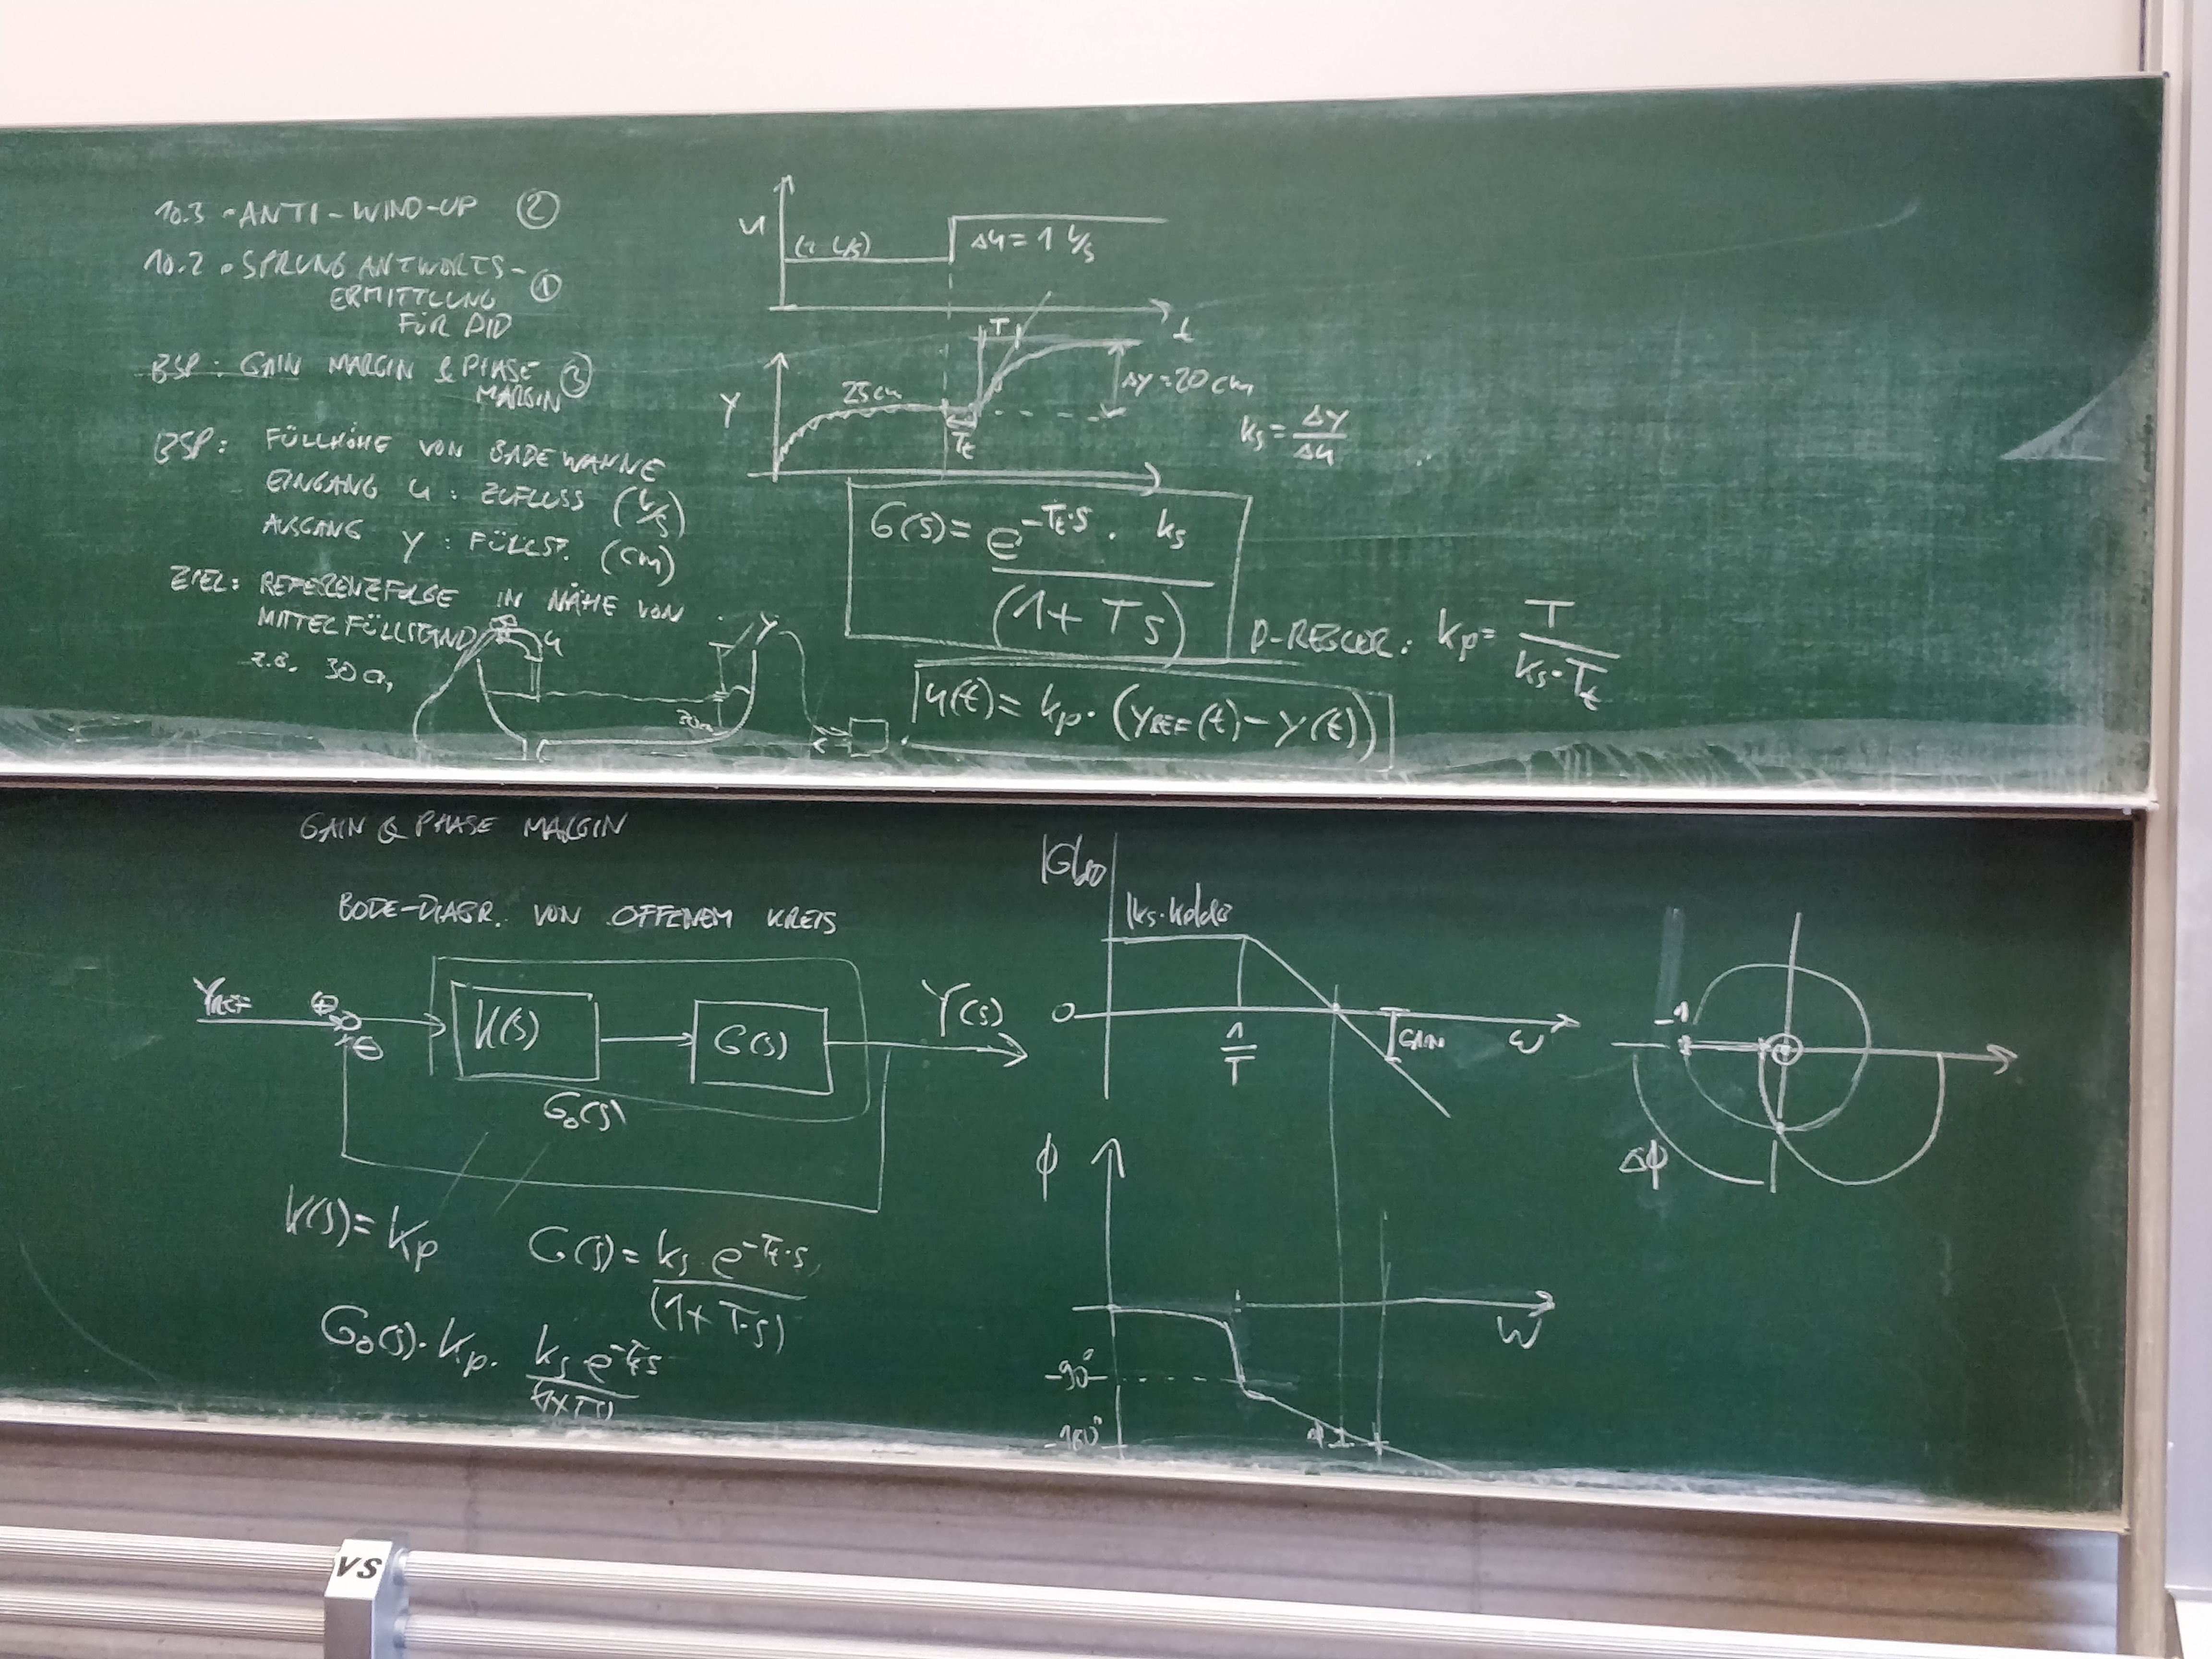 10.3 • ANTI-WIND-UP ②
10.2 • SPRUNGANTWORTS-
ERMITTLUNG ①
FÜR PID
BSP: GAIN MARGIN & PHASE ③
MARGIN
BSP: FÜLLHÖHE VON BADEWANNE
EINGANG u: ZUFLUSS (L/s)
AUSGANG y: FÜLLST. (cm)
ZIEL: REFERENZFOLGE IN NÄHE VON
MITTELFÜLLSTAND
z.B. 30cm
u
y
u
Δu = 1 L/s
t
T
Y
25cm
Tt
Δy = 20cm
ks = Δy/Δu
G(s) = e^-Tt·s · ks
(1+Ts)
P-REGLER: kp = T
ks·Tt
u(t) = kp·(yREF(t) - y(t))
GAIN & PHASE MARGIN
BODE-DIAGR. VON OFFENEM KREIS
YREF
⊕
⊖
K(s)
G(s)
Y(s)
Go(s)
K(s) = kp
G(s) = ks e^-Tt·s
(1+T·s)
Go(s)· kp· ks e^-Tts
(1+Ts)
|G|dB
|ks·kp|dB
0
1/T
GAIN
ω
ϕ
-90°
-180°
ω
-1
Δϕ
VS